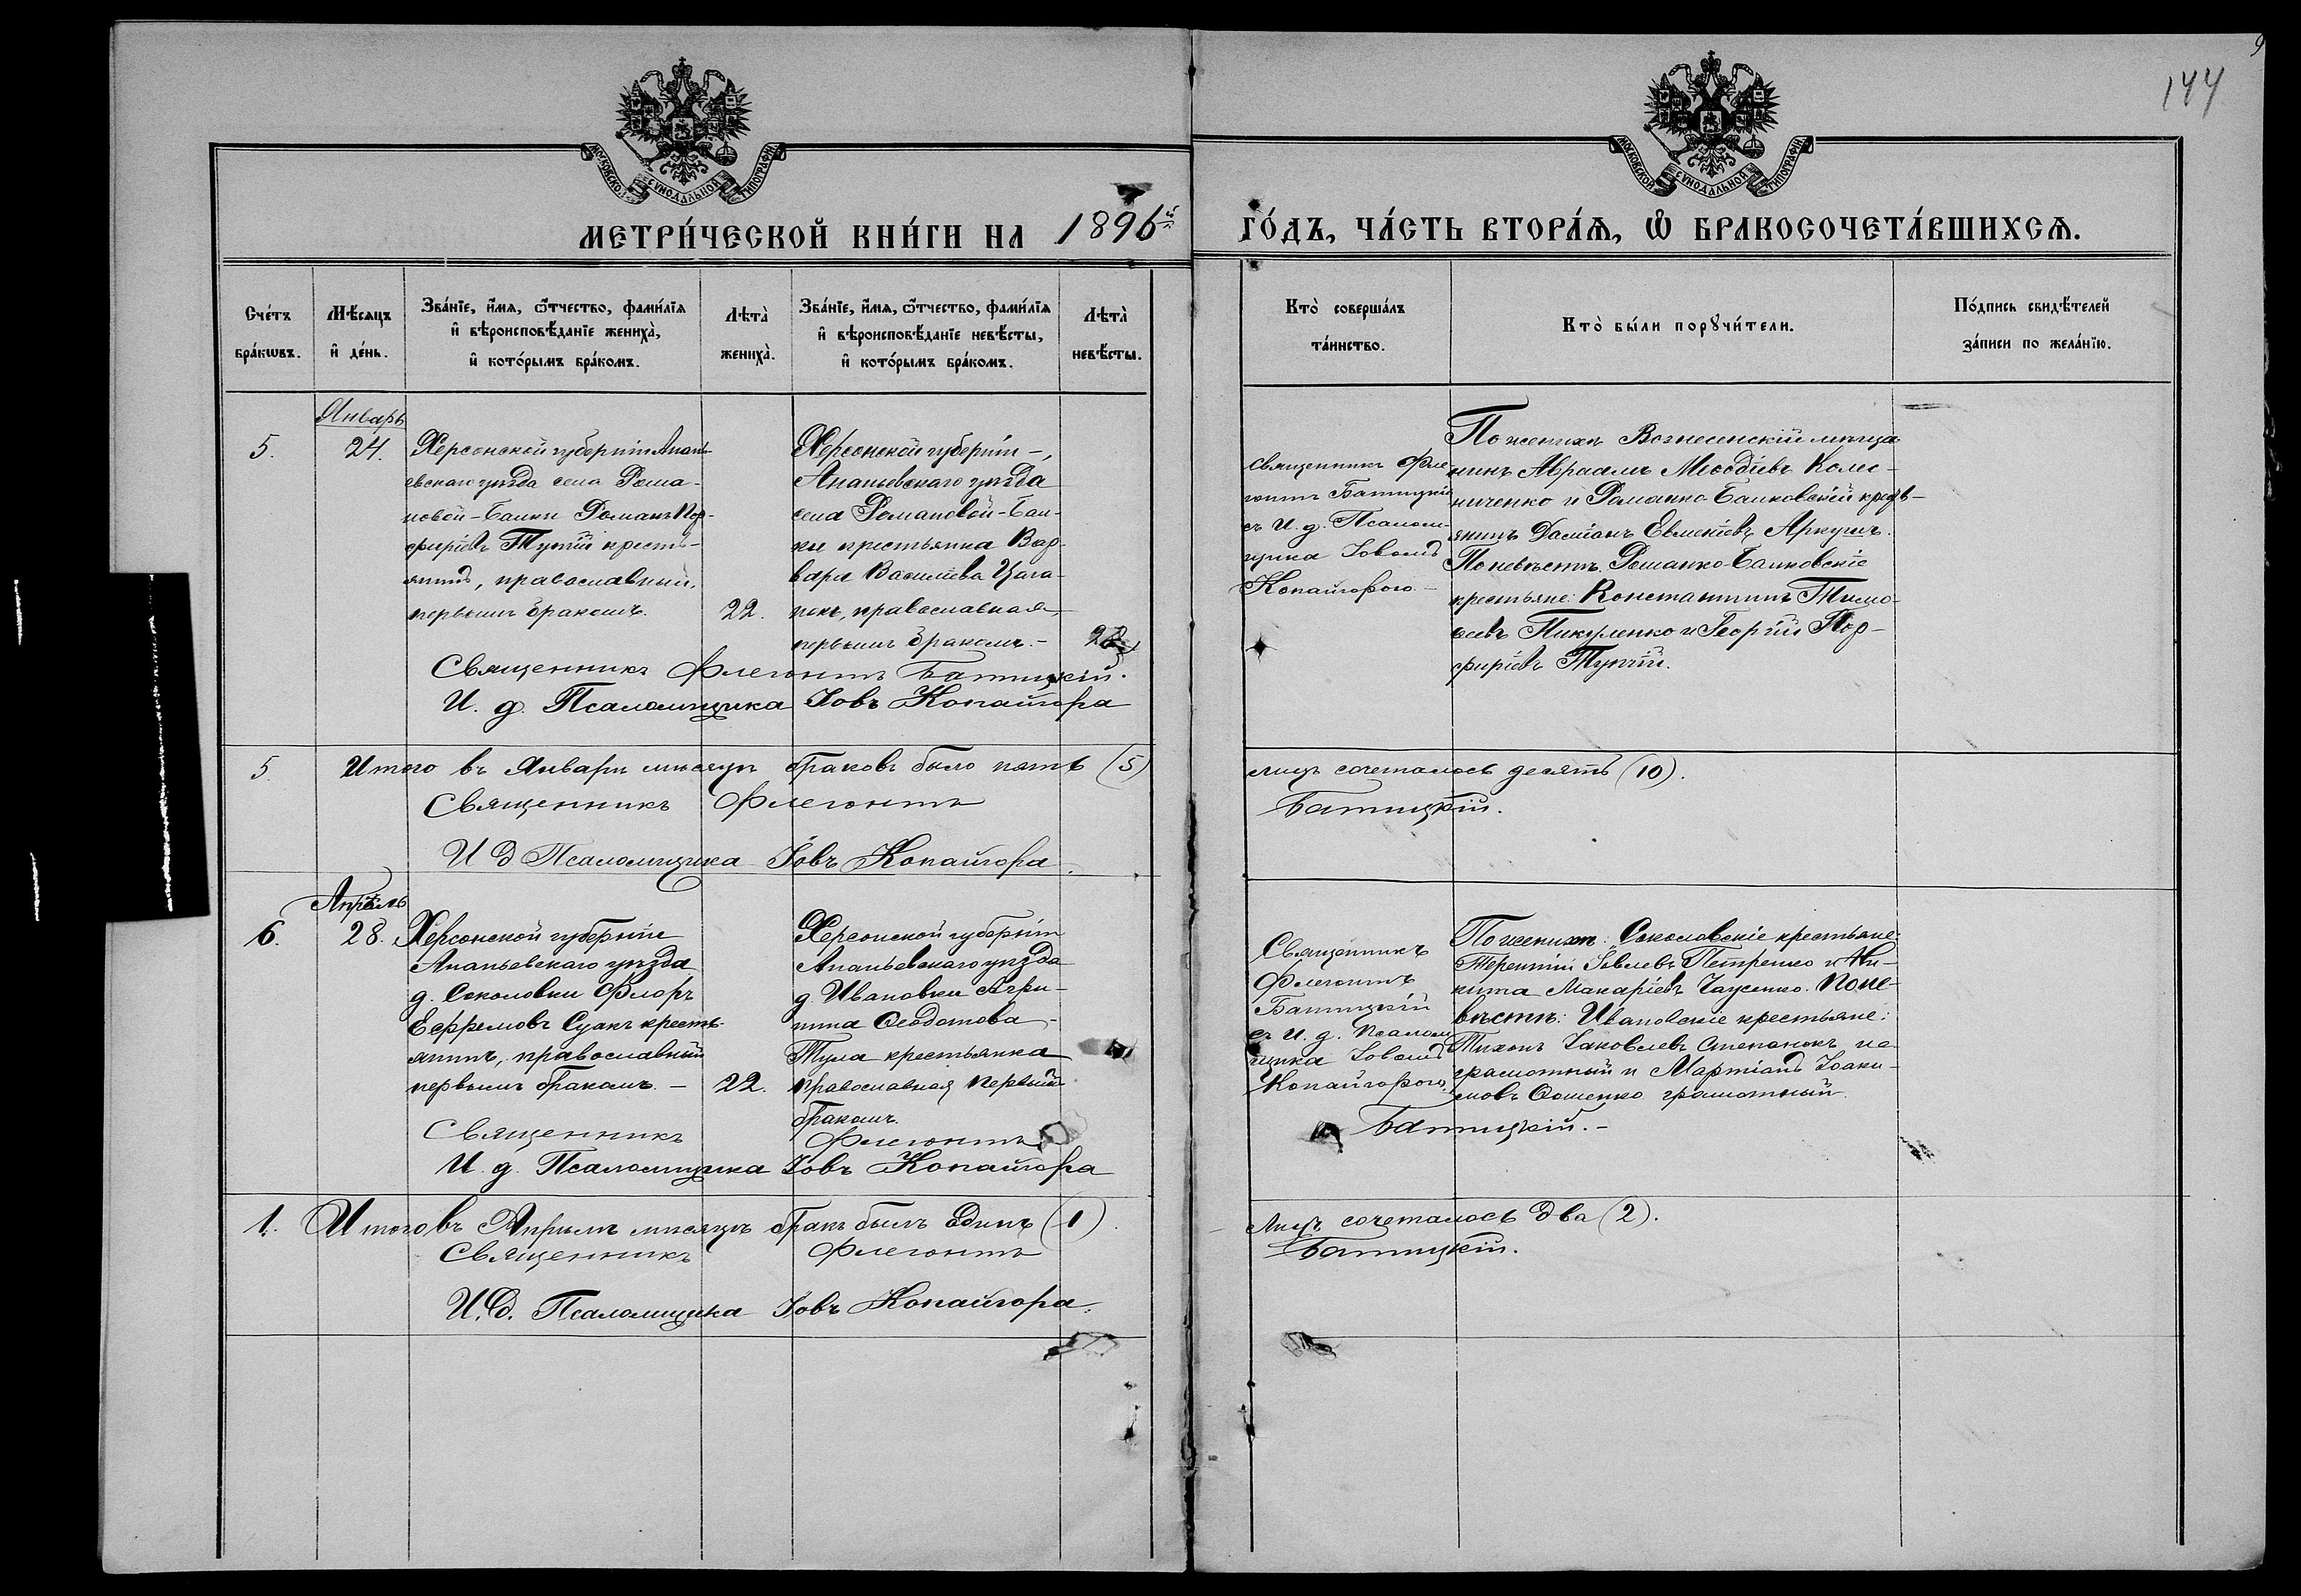 9
144
МОСКОВСКОЙ СУНОДАЛЬНОЙ ТИПОГРАФІИ
МОСКОВСКОЙ СУНОДАЛЬНОЙ ТИПОГРАФІИ
МЕТРИ́ЧЕСКОЙ КНИ́ГИ НА 1896й
ГО́ДЪ, ЧА́СТЬ ВТОРА́Ѧ, Ѡ҆ БРАКОСОЧЕТА́ВШИХСѦ.
Сче́тъ бра́кѡвъ.
Мѣ́сяцъ и҆ де́нь.
Зва́нїе, и҆́мя, ѻ҆́тчество, фами́лїя и҆ вѣроисповѣ́данїе жениха̀, и҆ кото́рымъ бра́комъ.
Лѣта̀ жениха̀.
Зва́нїе, и҆́мя, ѻ҆́тчество, фами́лїя и҆ вѣроисповѣ́данїе невѣ́сты, и҆ кото́рымъ бра́комъ.
Лѣта̀ невѣ́сты.
Кто̀ соверша́лъ та́инство.
Кто̀ бы́ли порꙋчи́тели.
По́дпись свидѣ́телей за́писи по жела́нїю.
Январь
5.
24.
Херсонской губерніи Анань-
евскаго уѣзда села Рома-
новой-Балки Романъ Пор-
фиріевъ Тупчій кресть-
янинъ, православный,
первымъ бракомъ.
22.
Херсонской губерніи -,
Ананьевскаго уѣзда
села Романовой-Бал-
ки крестьянка Вар-
вара Василіева Цыга-
нокъ, православная,
первымъ бракомъ. -
Священникъ Фле-
гонтъ Батицкій
съ И. д. Псалом-
щика Іовомъ
Копайгорого. -
По женихѣ Вознесенскій мѣща-
нинъ Авраамъ Меѳодіевъ Колес-
ниченко и Романко-Балковскій крест-
янинъ Даміанъ Евменіевъ Аркушъ.
По невѣстѣ. Романко-Балковскіе
крестьяне: Константинъ Тимо-
ѳеевъ Пикуленко и Георгій Пор-
фиріевъ Тупчій.
Священникъ Флегонтъ Батицкій.
И. д. Псаломщика Іовъ Копайгора
5
Итого въ Январѣ мѣсяцѣ браковъ было пять (5)
лицъ сочеталось десять (10).
Священникъ Флегонтъ
Батицкій.
И Д Псаломщика Іовъ Копайгора.
Апрѣль
6.
28.
Херсонской губерніи
Ананьевскаго уѣзда
д. Соколовки Флоръ
Ефремовъ Суакъ кресть-
янинъ, православный
первымъ бракомъ. -
22.
Херсонской губерніи
Ананьевскаго уѣзда
д. Ивановки Агри-
пина Ѳеодотова -
Тула крестьянка
православная первымъ
бракомъ.
Священникъ
Флегонтъ
Батицкій
съ И. д. Псалом
щика Іовомъ
Копайгорого.
По женихѣ: Соколовскіе крестьяне:
Терентій Іовлевъ Петренко и Ни-
кита Макаріевъ Чаусенко. По не-
вѣстѣ: Ивановскіе крестьяне:
Тихонъ Іаковлевъ Степанокъ не
грамотный и Мартіанъ Іоаки-
мовъ Ѳоменко грамотный.
Священникъ Флегонтъ
Батицкій. -
И. д. Псаломщика Іовъ Копайгора
1.
Итого въ Апрѣлѣ мѣсяцѣ бракъ былъ одинъ (1).
Лицъ сочеталось два (2).
Священникъ Флегонтъ
Батицкій.
И. Д. Псаломщика Іовъ Копайгора.